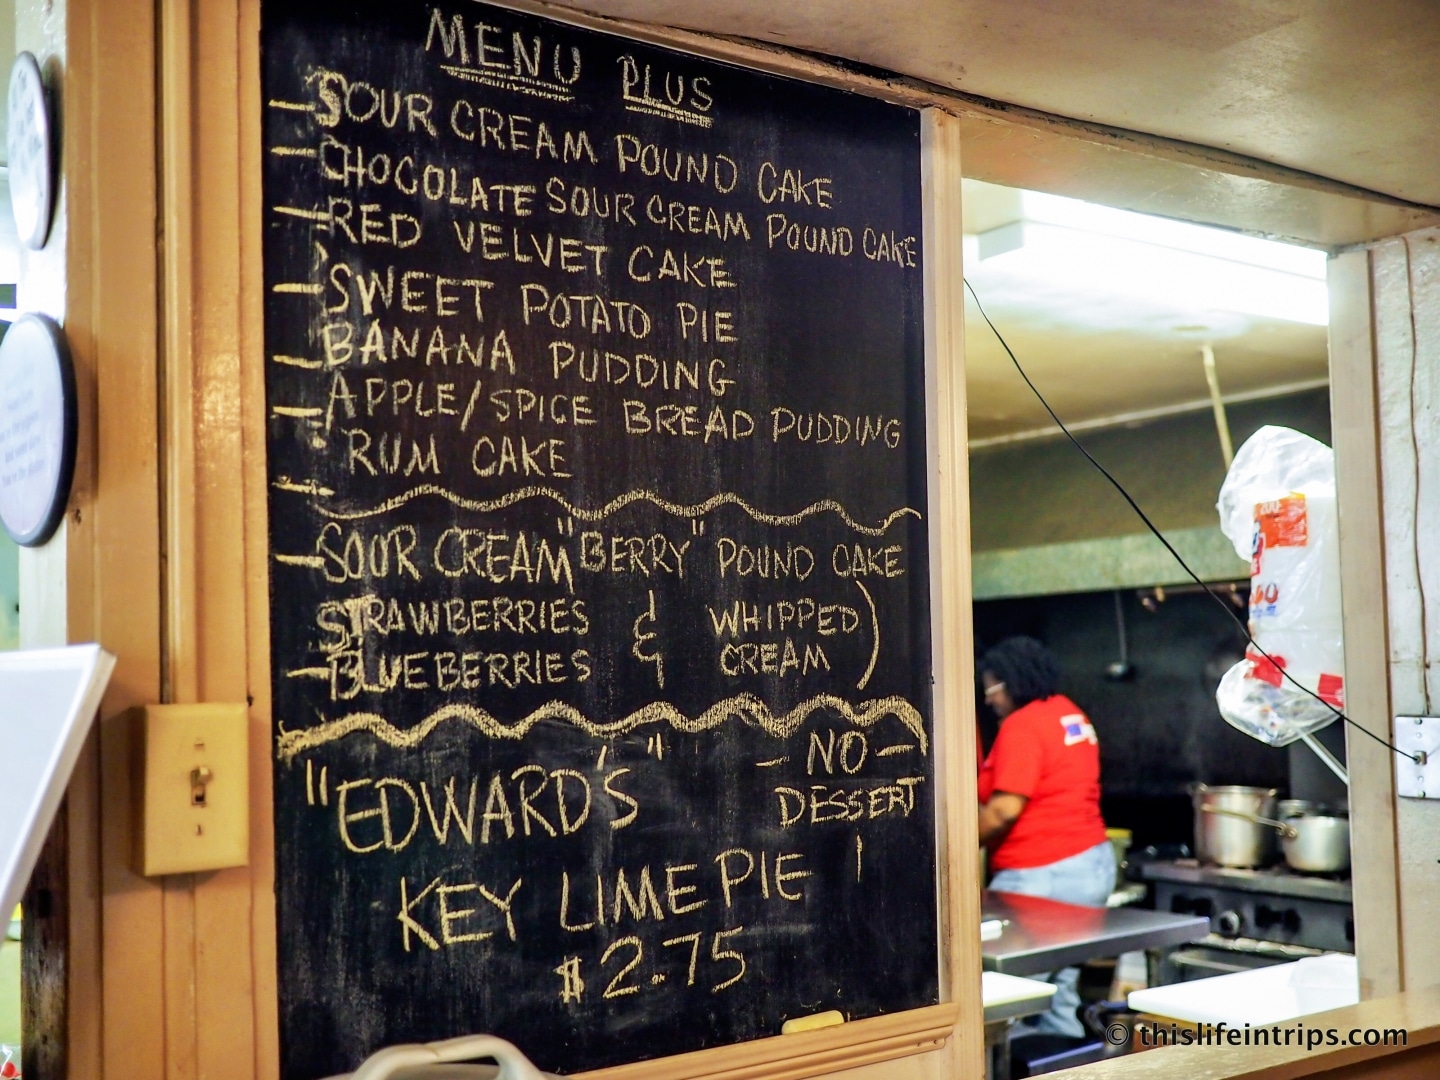 MENU PLUS
- SOUR CREAM POUND CAKE
- CHOCOLATE SOUR CREAM POUND CAKE
- RED VELVET CAKE
- SWEET POTATO PIE
- BANANA PUDDING
- APPLE/SPICE BREAD PUDDING
- RUM CAKE
- SOUR CREAM "BERRY" POUND CAKE
STRAWBERRIES & WHIPPED
- BLUEBERRIES CREAM)
"EDWARD'S" - NO -
DESSERT
KEY LIME PIE
$2.75
© thislifeintrips.com